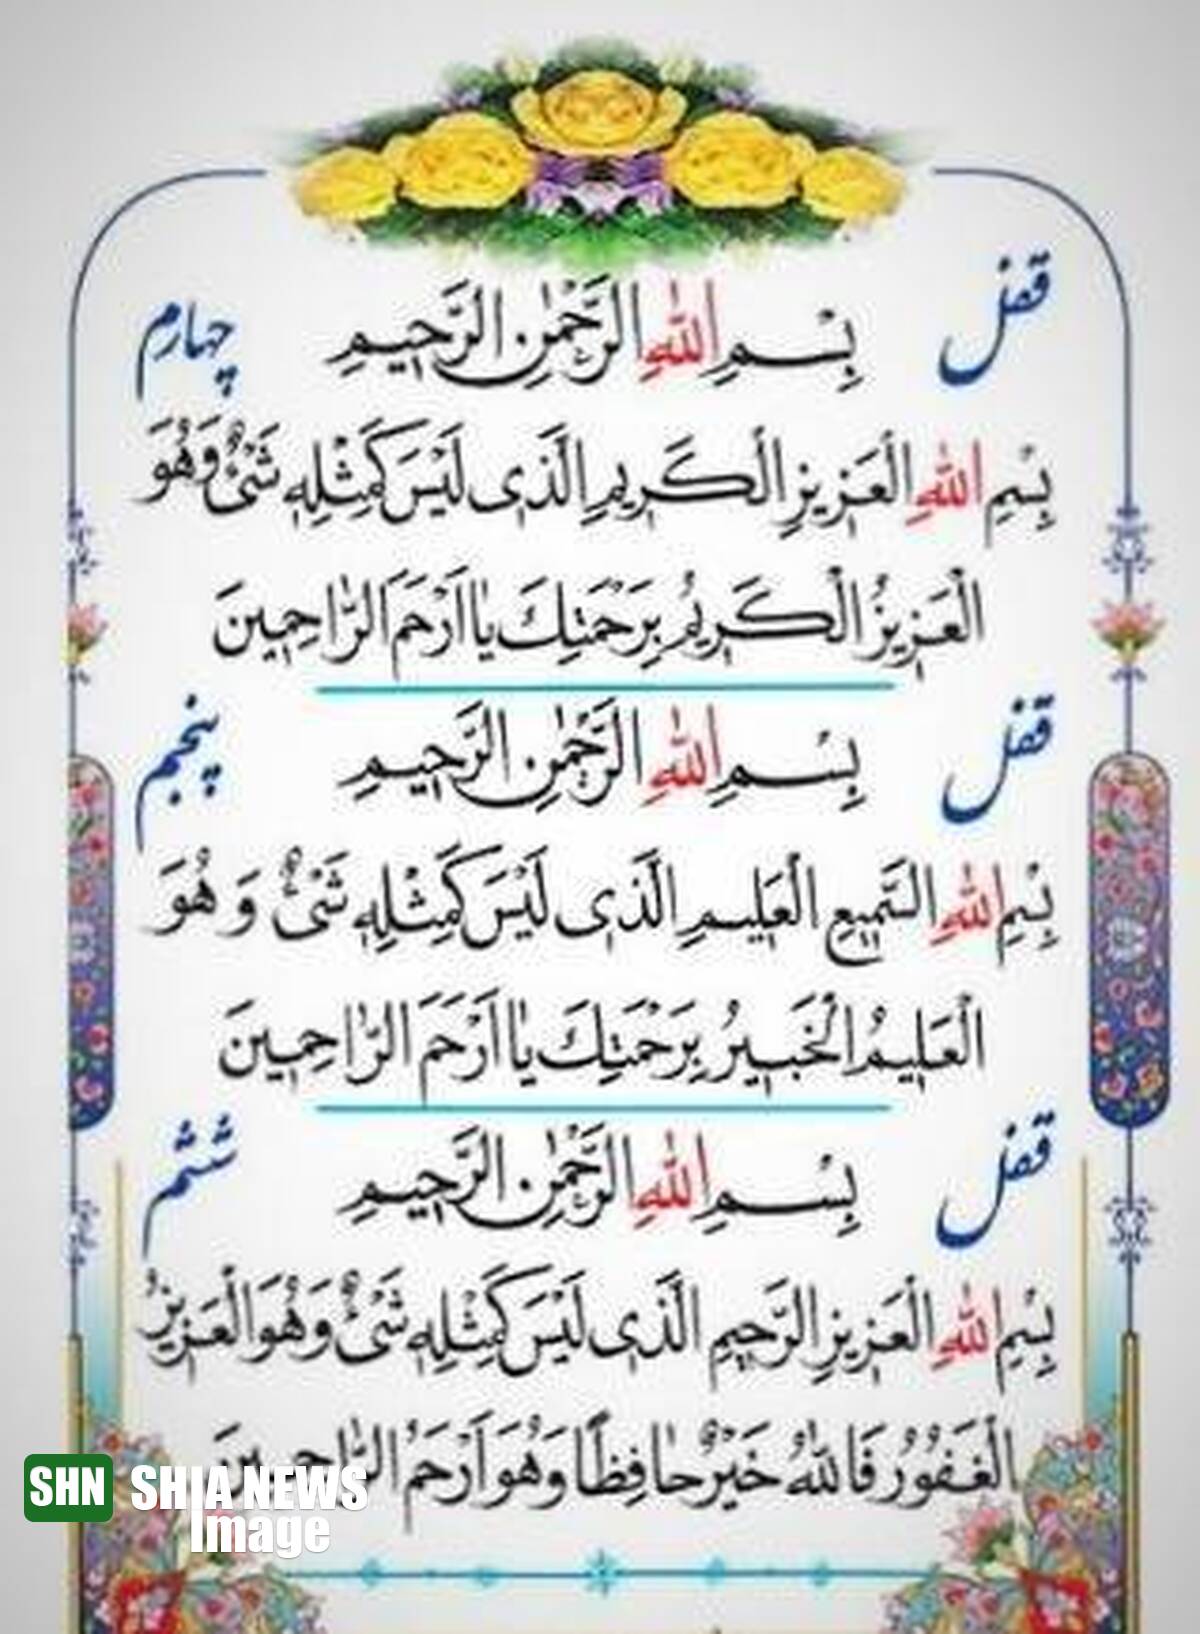 قفل چهارم
بِسْمِ اللهِ الرَّحْمٰنِ الرَّحيمِ
بِسْمِ اللهِ الْعَزيزِ الْكَريمِ الَّذى لَيْسَ كَمِثْلِهِ شَىْءٌ وَهُوَ
الْعَزيزُ الْكَريمُ بِرَحْمَتِكَ يا اَرْحَمَ الرّاحِمينَ
قفل پنجم
بِسْمِ اللهِ الرَّحْمٰنِ الرَّحيمِ
بِسْمِ اللهِ السَّميعِ الْعَليمِ الَّذى لَيْسَ كَمِثْلِهِ شَىْءٌ وَ هُوَ
الْعَليمُ الْخَبيرُ بِرَحْمَتِكَ يا اَرْحَمَ الرّاحِمينَ
قفل ششم
بِسْمِ اللهِ الرَّحْمٰنِ الرَّحيمِ
بِسْمِ اللهِ الْعَزيزِ الرَّحيمِ الَّذى لَيْسَ كَمِثْلِهِ شَىْءٌ وَهُوَ الْعَزيزُ
الْغَفُورُ فَاللهُ خَيْرٌ حافِظاً وَهُوَ اَرْحَمُ الرّاحِمينَ
SHN SHIA NEWS
Image